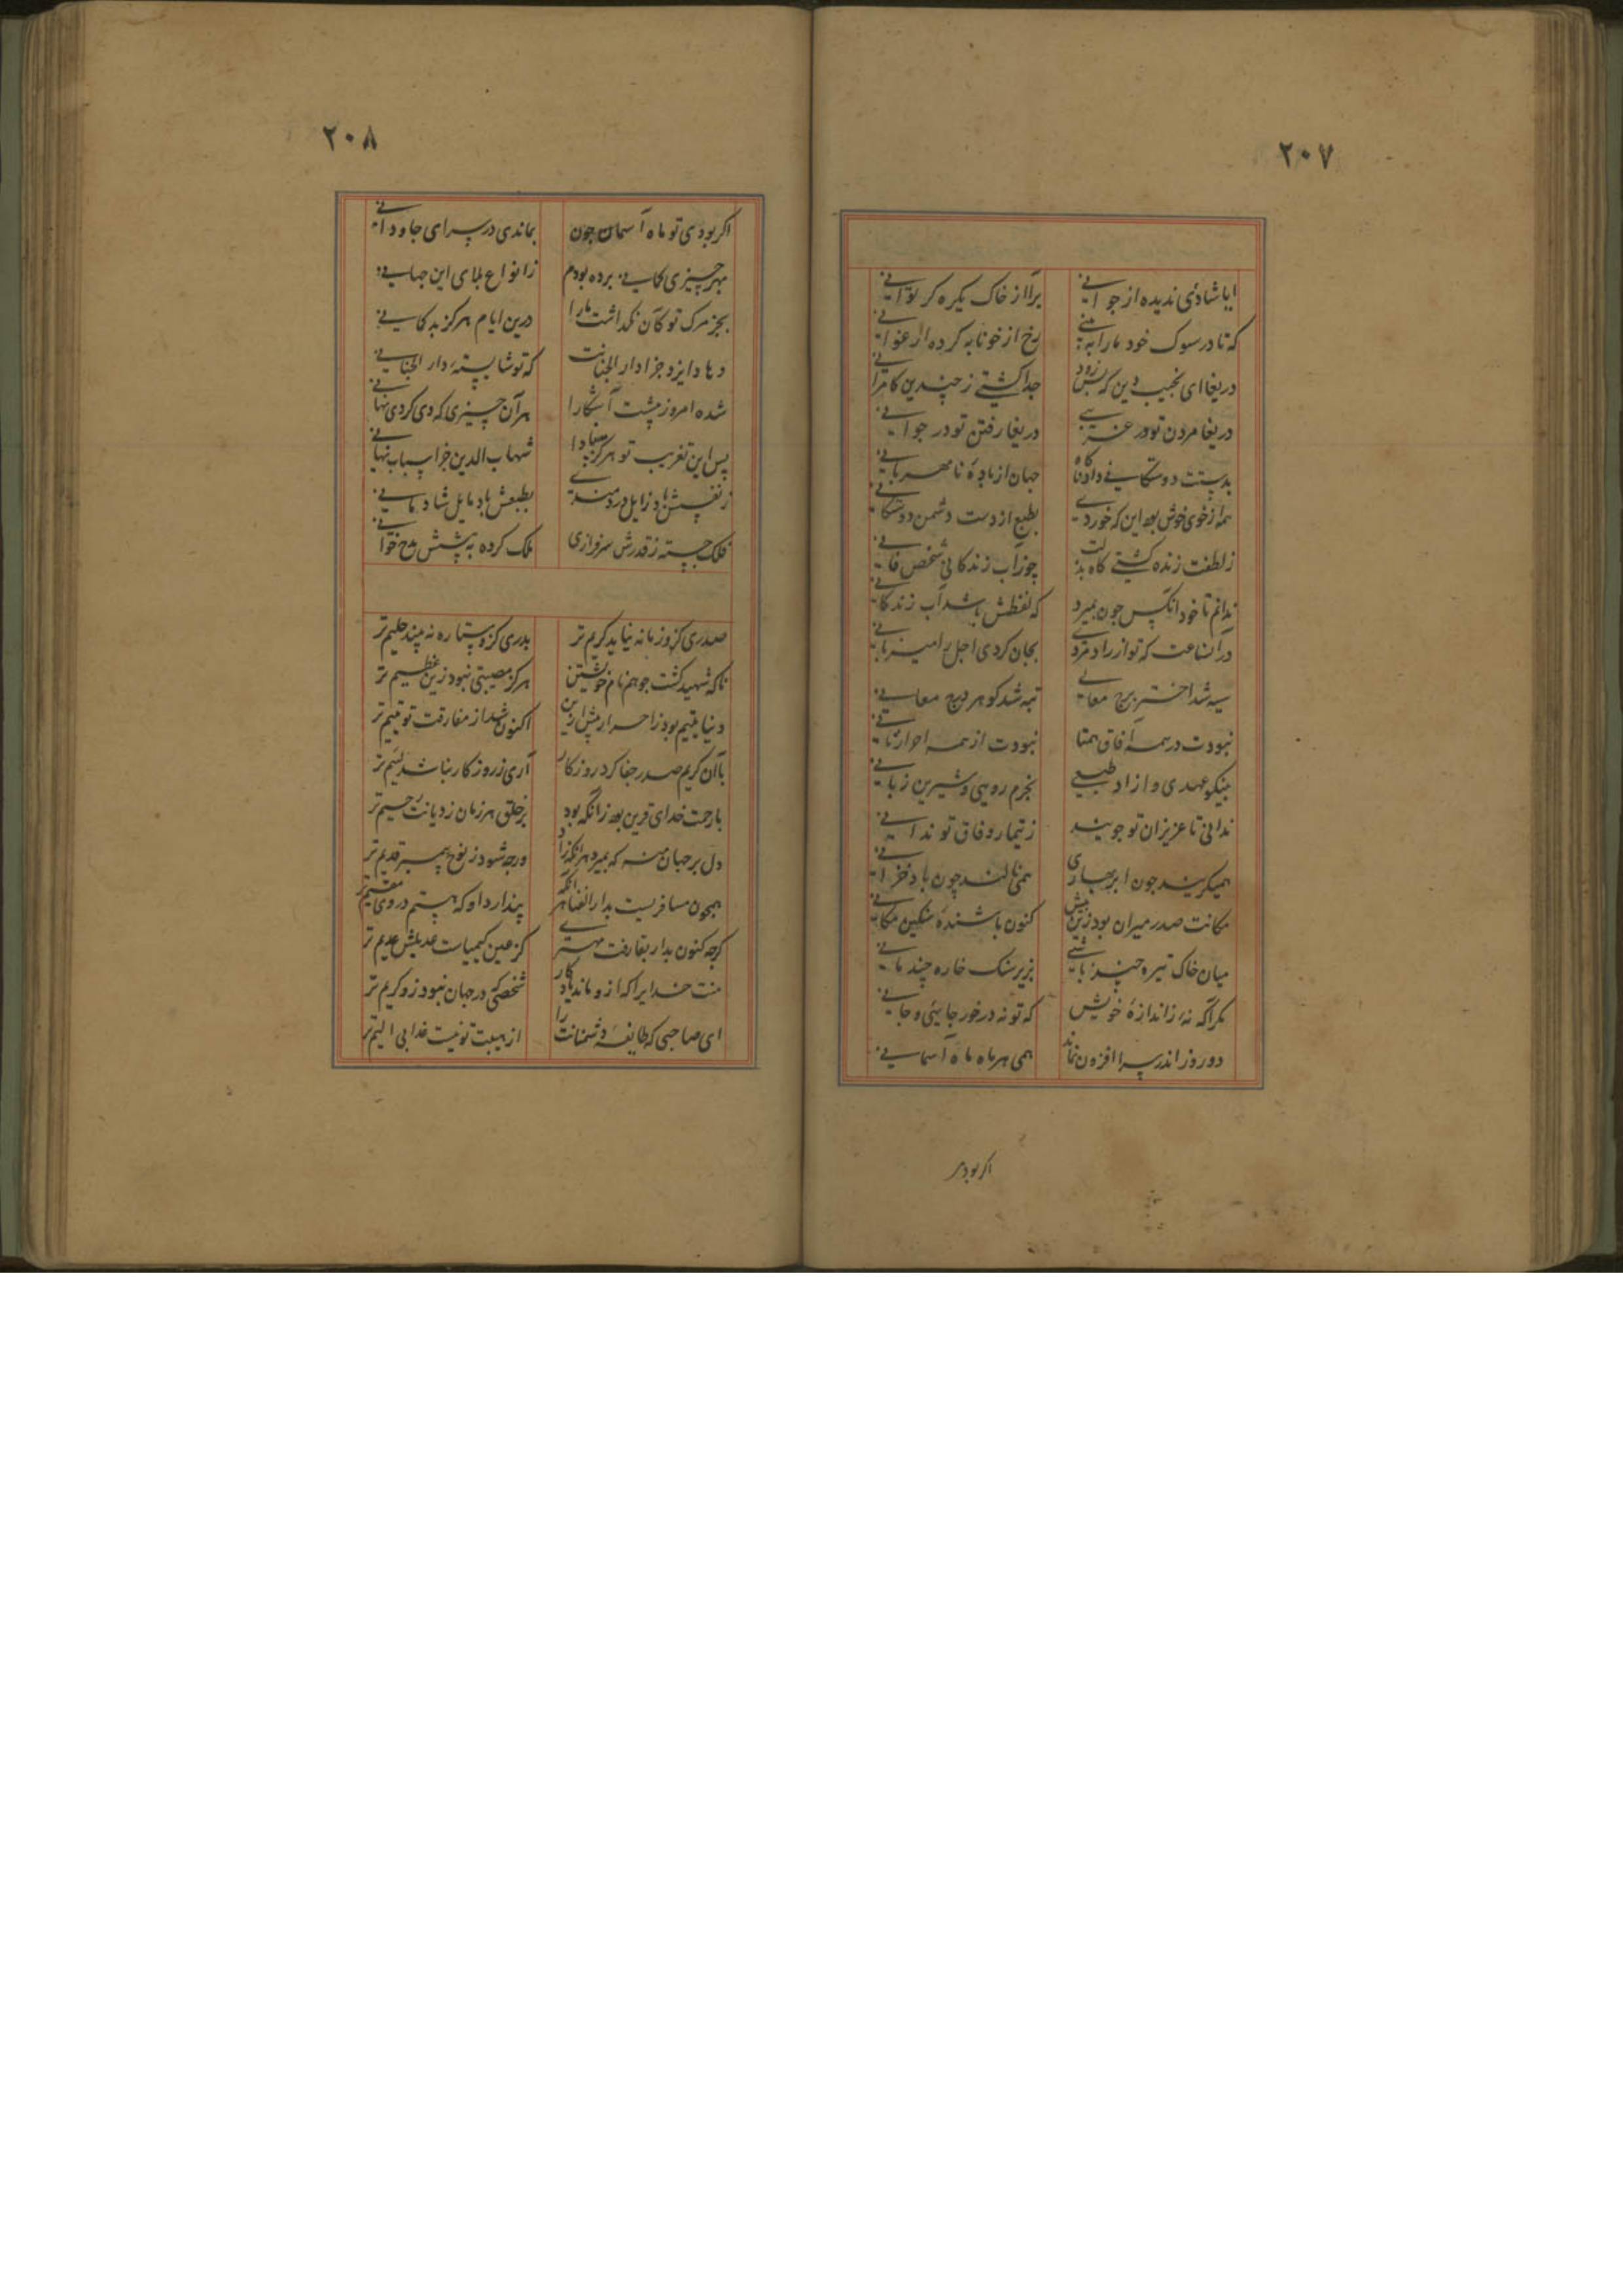 ۲۰۷
ایا شادی ندیده از جوانی برآ از خاک یکره کر توانی
که تا در سوک خود ما را به بینی رخ از خونابه کرده ارغوانی
دریغا ای نجیب دین که بس زود جدا کشتی ز چندین کامرانی
دریغا مردن تو در غریبی دریغا رفتن تو در جوانی
بدستت دوستکانی داد ناکاه جهان از بادهٔ نامهربانی
همه از خوی خوش بود این که خوردی بطبع از دست دشمن دوستکانی
ز لطفت زنده کشتی کالبد چو زآب زندکانی شخص فانی
ندانم تا خود آنکس چون بمیرد که لفظش باشد آب زندکانی
در آنساعت که تو از رادمردی بجان کردی اجل را میزبانی
سیه شد اختر برج معالی تبه شد کوهر درج معانی
نبودت در همه آفاق همتا نبودت از همه احرار ثانی
بنیکو عهدی و آزاد طبعی بخرم رویی و شیرین زبانی
ندانی تا عزیزان تو چونند ز تیمار وفاق تو ندانی
همیکریند چون ابر بهاری همی نالند چون باد خزانی
مکانت صدر میران بود زین پیش کنون باشندهٔ مسکین مکانی
میان خاک تیره چند باشی بزیر سنک خاره چند مانی
مکر آکه نهٔ ز اندازهٔ خویش که تو نه در خور جایی و جانی
دو روز اندر سرا افزون نماند همی هر ماه ماه آسمانی
اکر بودی
۲۰۸
اکر بودی تو ماه آسمان چون بماندی در سرای جاودانی
بهر چیزی کمانی برده بودم ز انواع بلای این جهانی
بجز مرک تو کآن نکذاشت ما را درین ایام هرکز بدکمانی
دهاد ایزد جزا دار الجنانت که تو شایستهٔ دار الجنانی
شده امروز پیشت آشکارا هر آن چیزی که دی کردی نهانی
پس این تعزیت تو هرکز مبادا شهاب الدین جز اسباب تهانی
ز نفسش باد زایل دردمندی بطبعش باد مایل شادمانی
فلک جسته ز قدرش سرفرازی ملک کرده به پیشش مدح خوانی
صدری کزو زمانه نیابد کریم تر بدری کزو ستاره نه بیند حلیم تر
تا که شهید کشت چو هم نام خویشتن هرکز مصیبتی نبود زین عظیم تر
دنیا یتیم بود ز احرار پیش ازین اکنون شد از مفارقت تو یتیم تر
با آن کریم صدر جفا کرد روزکار آری ز روزکار نباشد لئیم تر
با رحمت خدای قرین بود زآنکه بود بر خلق هر زمان ز دیانت رحیم تر
دل بر جهان منه که بمیرد هر آنکه زاد ورچه شود ز نوح پیمبر قدیم تر
همچون مسافریست بدار الفنا هر آنکه پندارد او که هستم در وی مقیم تر
کرچه کنون بدار بقا رفت مهتری کز عین کیمیاست عدیلش عدیم تر
منت خدایرا که ازو ماند یادکار شخصی که در جهان نبود زو کریم تر
ای صاحبی که طایفهٔ دشمنانت را از هیبت تو نیست عذابی الیم تر